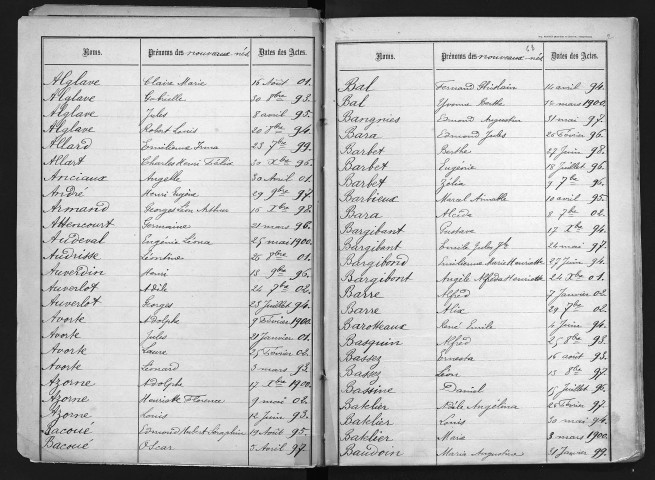 Noms. Prénoms des nouveaux nés Dates des Actes.
Alglave Claire Marie 16 Août 01.
Alglave Gabrielle 30 8bre 93.
Alglave Jules 8 avril 95.
Alglave Robert Louis 20 7bre 94.
Allard Emilienne Irma 23 7bre 99.
Allart Charles Henri Félix 30 Xbre 96.
Anciaux Angèle 30 Avril 01.
André Henri Eugène 29 9bre 97.
Armand Georges Léon Arthur 16 Xbre 98.
Attencourt Germaine 21 mars 96.
Audeval Eugénie Léona 25 mai 1900.
Audrisse Léontine 25 7bre 01.
Auverdin Henri 18 9bre 95.
Auverlot Adèle 24 7bre 02.
Auverlot Georges 28 Juillet 94.
Avork Adolphe 9 Février 1900.
Avork Jules 21 Janvier 01.
Avork Laure 25 Février 02.
Avork Léonard 3 mars 93.
Azorne Adolphe 17 8bre 1900.
Azorne Henriette Florence 9 mai 02.
Azorne Louis 12 Juin 93.
Bacoué Edmond Hubert Séraphin 19 Août 95.
Bacoué Oscar 3 Avril 97.
Noms. Prénoms des nouveaux nés Dates des Actes.
Bal Fernand Ghislain 14 avril 94.
Bal Yvonne Berthe 12 mars 1900.
Bangnies Edmond Augustin 31 mai 97.
Bara Edmond Jules 20 Février 96.
Barbet Berthe 27 Juin 98.
Barbet Eugénie 18 Juillet 96.
Barbet Zélia 9 7bre 96.
Barbieux Marcel Aimable 10 avril 95.
Bara Alcide 8 7bre 02.
Bargibant Gustave 17 Xbre 94.
Bargibant Emile Jules 24 mai 97.
Bargibond Emilienne Marie Henriette 27 Juin 94.
Bargibont Angèle Alfréda Henriette 24 Xbre 01.
Barre Alfred 7 Janvier 02.
Barre Alix 29 7bre 02.
Barotteaux René Emile 4 Juin 94.
Basquin Alfred 25 8bre 93.
Bassez Ernesta 16 août 93.
Bassez Léon 18 8bre 97.
Bassine Daniel 15 Juillet 96.
Baklier Adèle Angélina 25 Février 97.
Baklier Louis 30 mai 94.
Baklier Marie 3 mars 1900.
Baudoin Marie Augustine 31 Janvier 99.